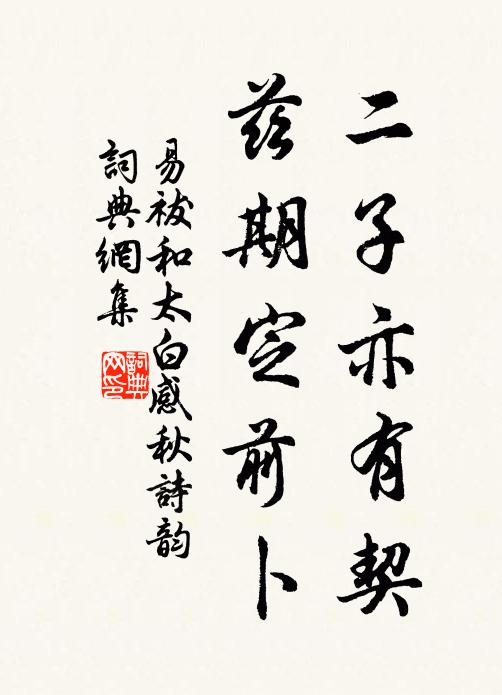 二子亦有契
茲期定前卜
易祓和太白感秋詩韵
詞典網集
詞典网印